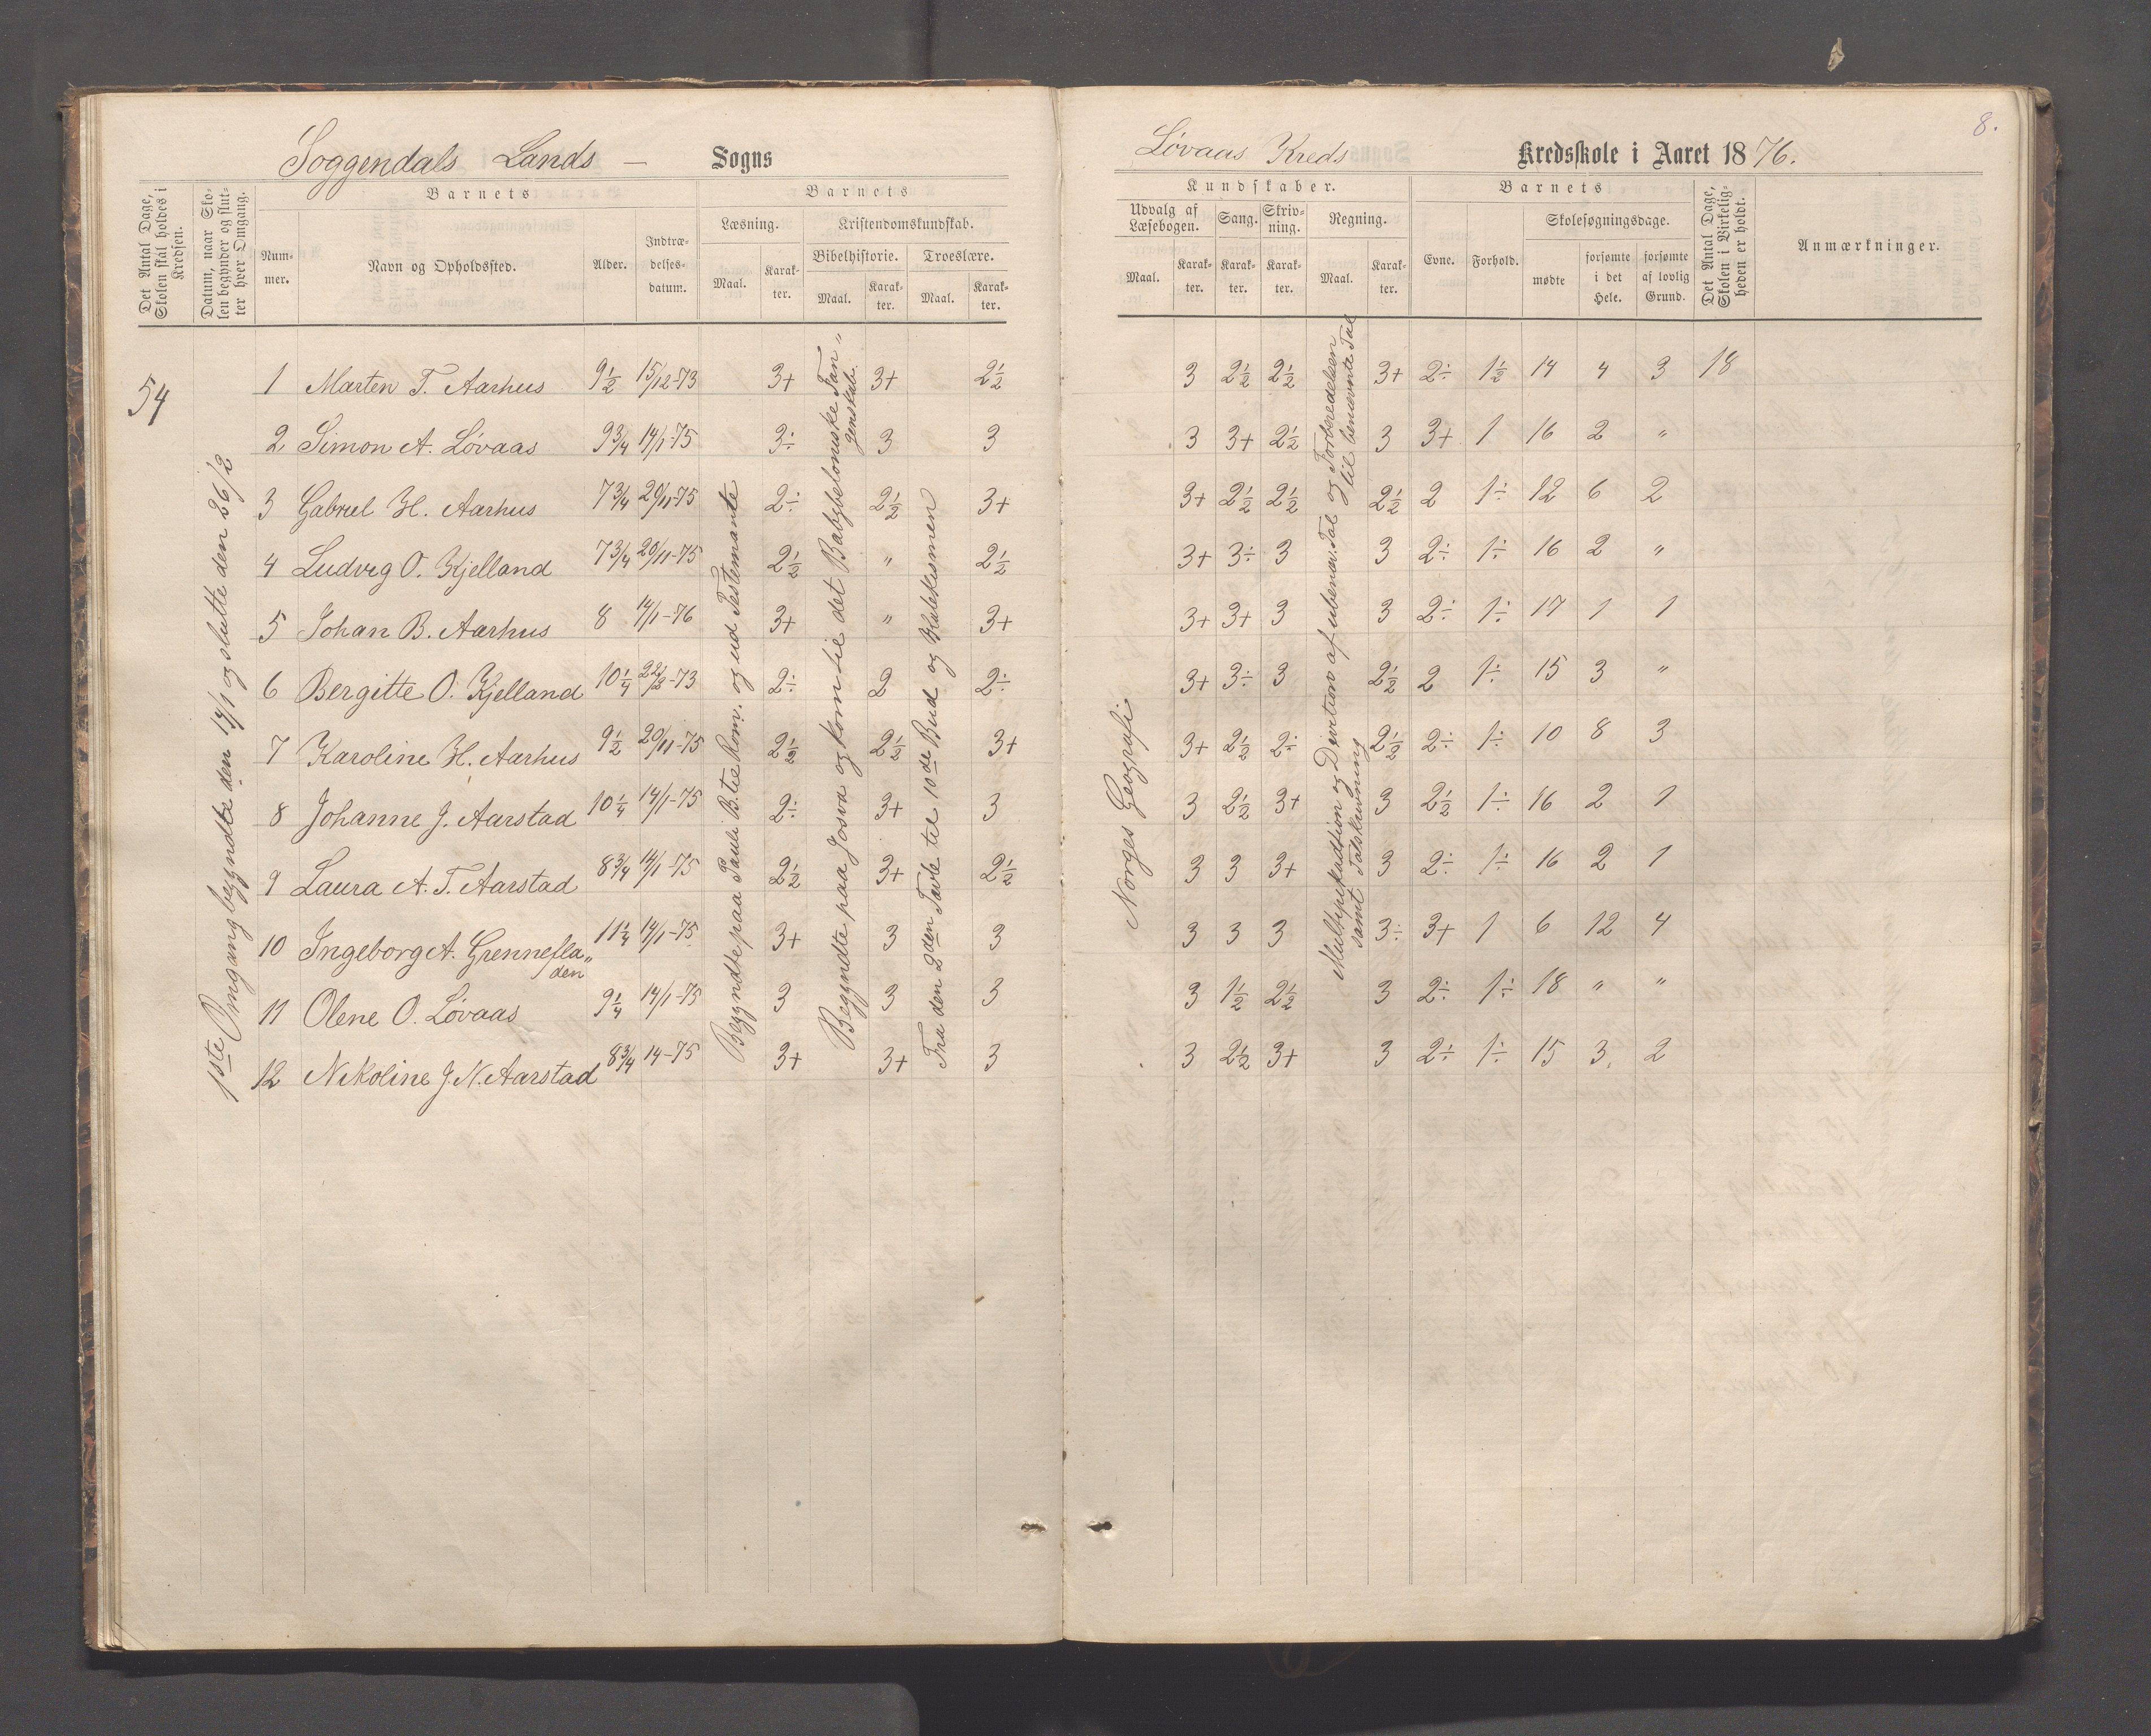 8.
Soggendals Lands – Sogns
Løvaas Kreds Kredsskole i Aaret 1876.
Det Antal Dage, Skolen skal holdes i Kredsen.
Datum, naar Skolen begynder og slutter hver Omgang.
Barnets
Nummer.
Navn og Opholdssted.
Alder.
Indtrædelsesdatum.
Barnets
Læsning.
Maal.
Karakter.
Kristendomskundskab.
Bibelhistorie.
Maal.
Karakter.
Troeslære.
Maal.
Karakter.
Kundskaber.
Udvalg af Læsebogen.
Maal.
Karakter.
Sang.
Karakter.
Skrivning.
Karakter.
Regning.
Maal.
Karakter.
Barnets
Evne.
Forhold.
Skolesøgningsdage.
mødte
forsømte i det Hele.
forsømte af lovlig Grund.
Det Antal Dage, Skolen i Virkeligheden er holdt.
Anmærkninger.
54
1ste Omgang begyndte den 14/1 og slutte den 26/2
Begyndte paa Pauli B. til Rom. og ud Testemante
Begyndte paa Josva og kom til det Babybeloniske Fangenskab.
Fra den 2den Tavle til 10de Bud og Katekismen
Norges Geografi
Multipikadtion og Divition af ubenævn. Tal og Forberedelsen til benævnte Tal
samt Talskrivning
1 Marten T. Aarhus 9 1/2 15/12-73 3+ 3+ 2 1/2 3 2 1/2 2 1/2 3+ 2÷ 1 1/2 14 4 3 18
2 Simon A. Løvaas 9 3/4 14/1-75 3÷ 3 3 3 3+ 2 1/2 3 3+ 1 16 2 "
3 Gabriel H. Aarhus 7 3/4 20/11-75 2÷ 2 1/2 3+ 3+ 2 1/2 2 1/2 2 1/2 2 1÷ 12 6 2
4 Ludvig O. Kjelland 7 3/4 20/11-75 2 1/2 " 2 1/2 3+ 3÷ 3 3 2÷ 1÷ 16 2 "
5 Johan B. Aarhus 8 14/1-76 3+ " 3+ 3+ 3+ 3 3 2÷ 1÷ 17 1 1
6 Bergitte O. Kjelland 10 1/4 22/2-73 2÷ 2 2÷ 3+ 3÷ 3 2 1/2 2 1÷ 15 3 "
7 Karoline H. Aarhus 9 1/2 20/11-75 2 1/2 2 1/2 3+ 3+ 2 1/2 2÷ 2 1/2 2÷ 1÷ 10 8 3
8 Johanne J. Aarstad 10 1/4 14/1-75 2÷ 3+ 3 3 2 1/2 3+ 3 2 1/2 1÷ 16 2 1
9 Laura A. T. Aarstad 8 3/4 14/1-75 2 1/2 3+ 2 1/2 3 3 3+ 3 2÷ 1÷ 16 2 1
10 Ingeborg A. Grennefla„den 11 1/4 14/1-75 3+ 3 3 3 3 3 3÷ 3+ 1 6 12 4
11 Olene O. Løvaas 9 1/4 14/1-75 3 3 3 3 1 1/2 2 1/2 3 2÷ 1÷ 18 " "
12 Nikoline J. N. Aarstad 8 3/4 14-75 3+ 3+ 3 3 2 1/2 3+ 3 2÷ 1÷ 15 3. 2